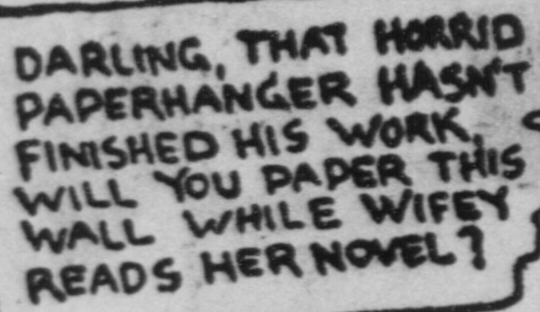 DARLING, THAT HORRID
PAPERHANGER HASN'T
FINISHED HIS WORK,
WILL YOU PAPER THIS
WALL WHILE WIFEY
READS HER NOVEL?